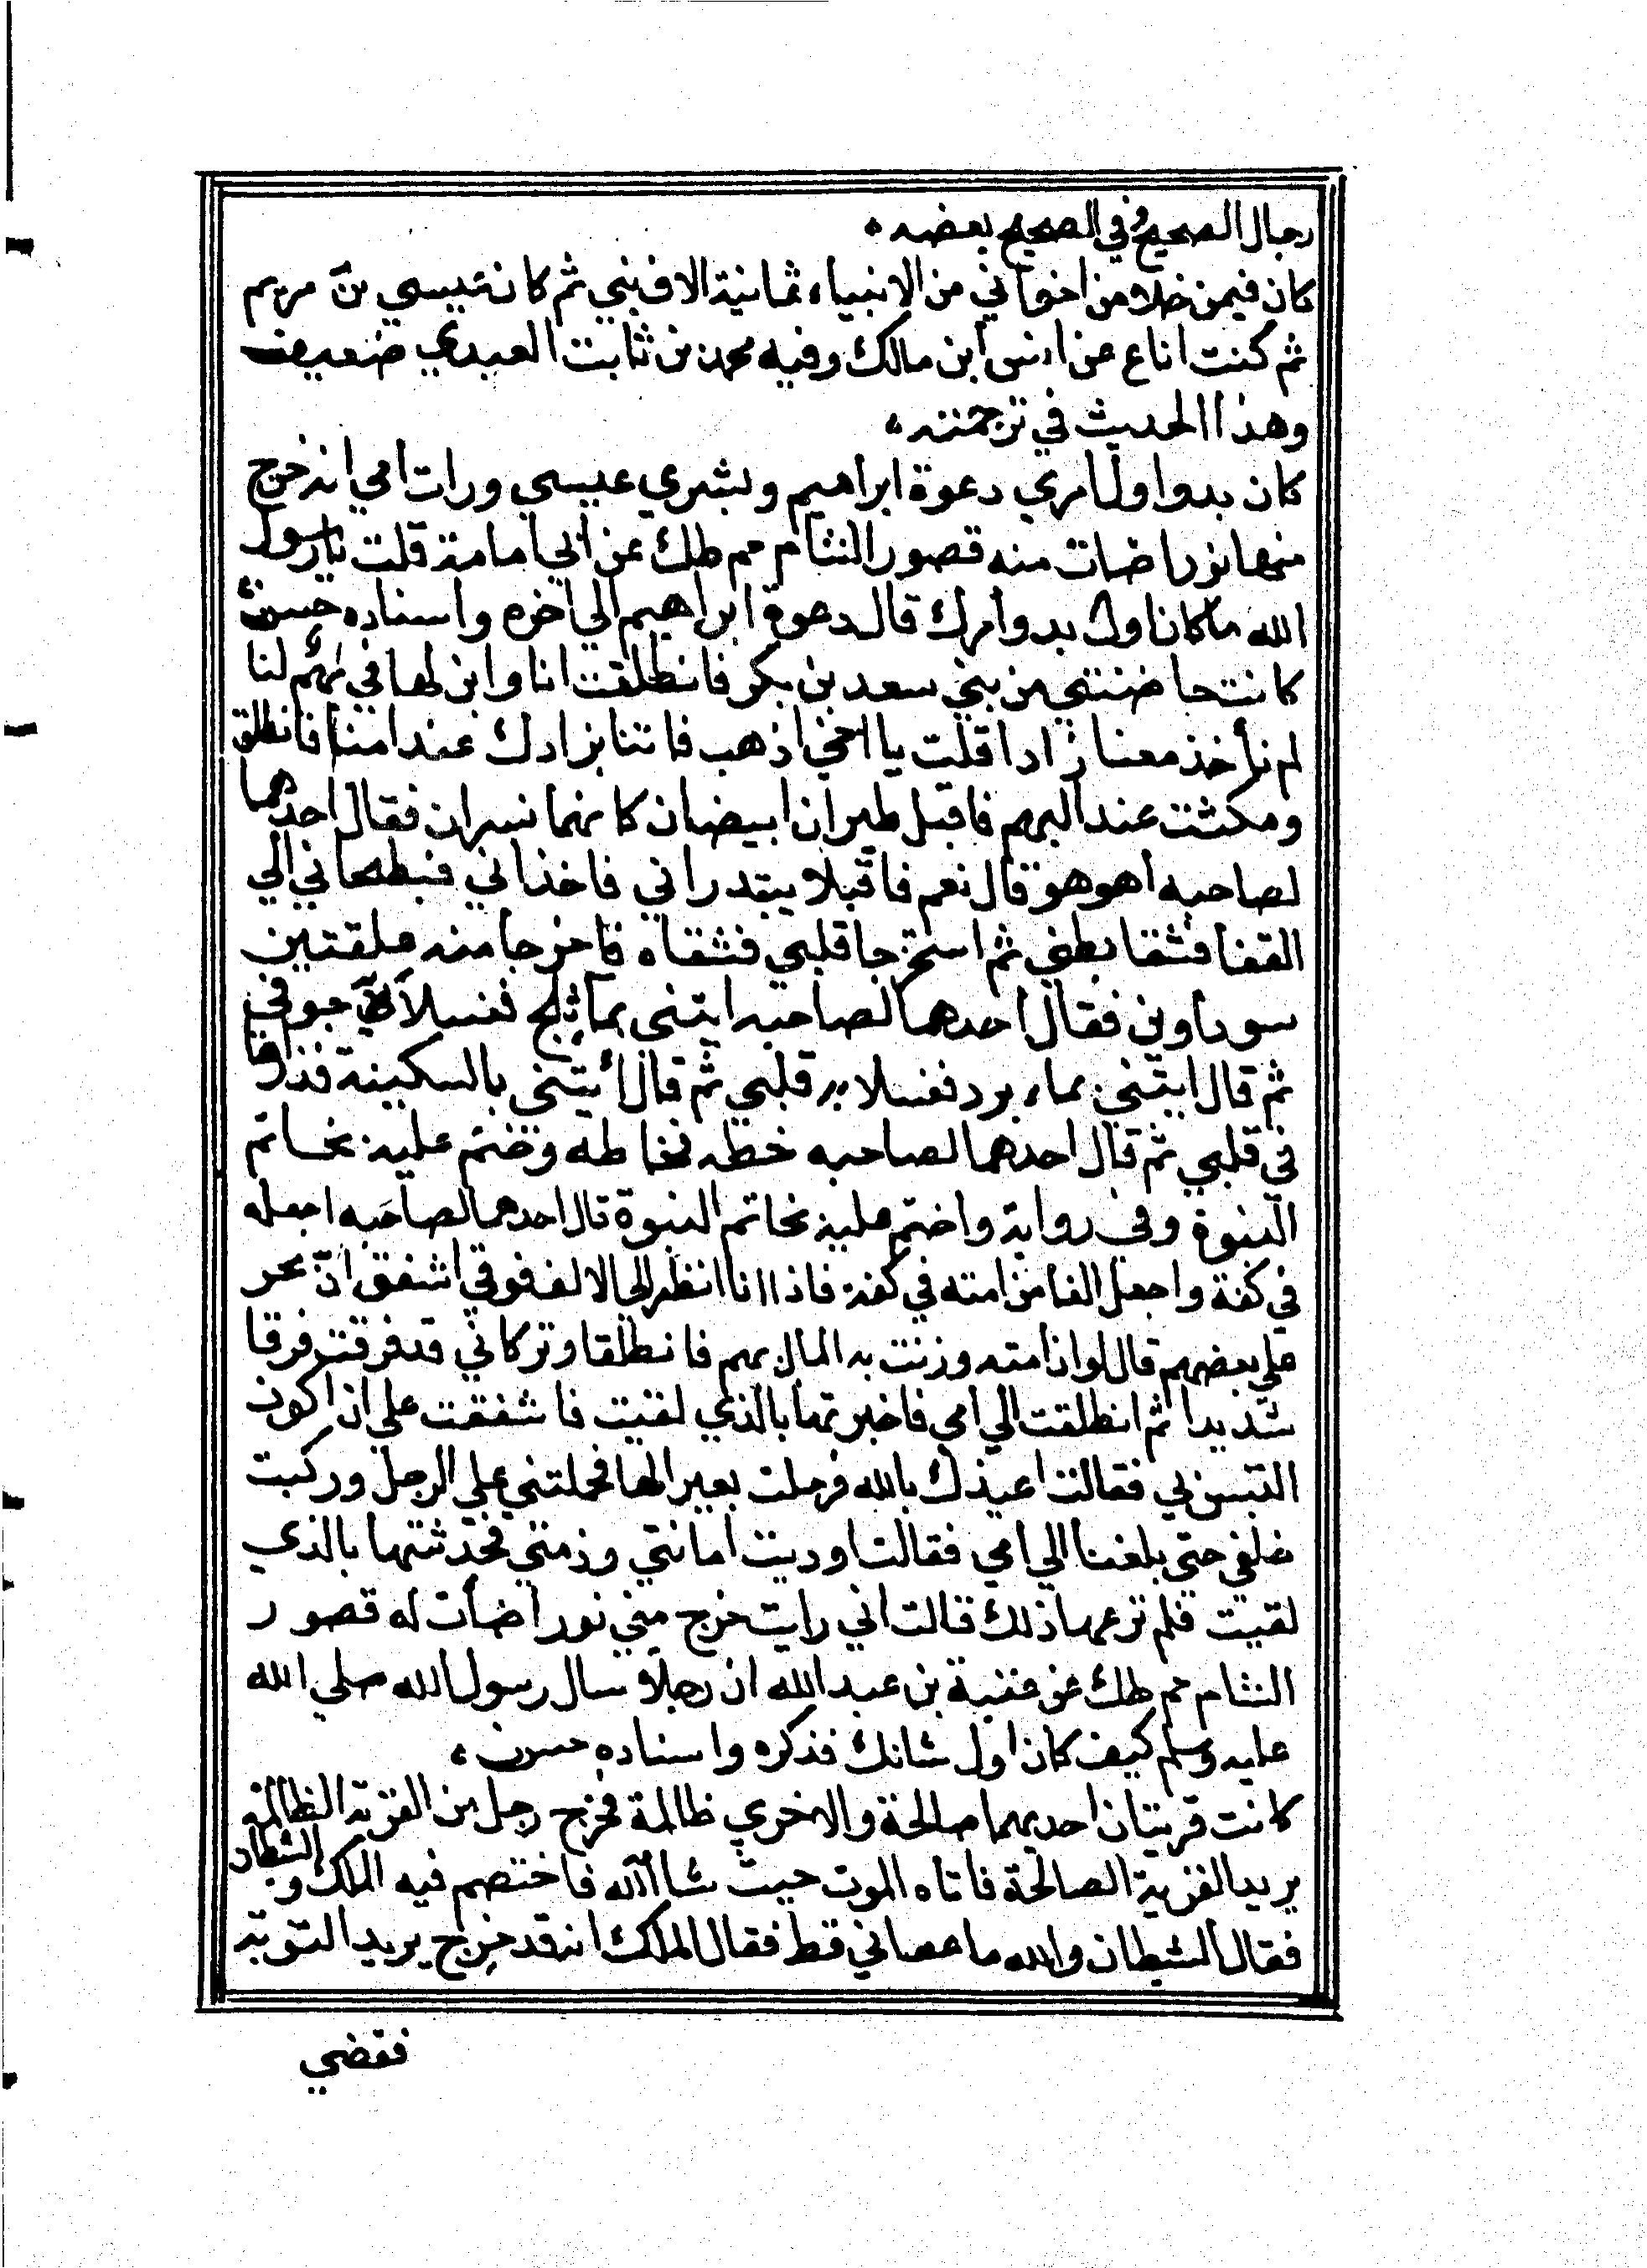 رجال الصحيح وفي الصحيح بعضه
كان فيمن خلا من اخواني من الانبياء ثمانية الاف نبي ثم كان عيسي بن مريم
ثم كنت انا ع عن انس ابن مالك وفيه محمد بن ثابت العبدي ضعيف
وهذا الحديث في ترجمته
كان بدوا اول امري دعوة ابراهيم وبشري عيسي ورات امي انه خرج
منها نور اضات منه قصور الشام حم طك عن ابي امامة قلت يا رسول
الله ما كان اول بدو امرك قال دعوة ابراهيم الي اخره واسناده حسن
كانت حاضنتي من بني سعد بن بكر فانطلقت انا وابن لها في بهم لنا
لم نأخذ معنا زادا قلت يا اخي اذهب فاتنا بزادك عند امنا فانطلق
ومكثت عند البهم فاقبل طيران ابيضان كانهما نسران فقال احدهما
لصاحبه اهو هو قال نعم فاقبلا يبتدراني فاخذاني فبطحاني الي
القفا فشقا بطني ثم استخرجا قلبي فشقاه فاخرجا منه علقتين
سوداوين فقال احدهما لصاحبه ايتني بما ثلج فغسلا به جوفي
ثم قال ايتني بماء برد فغسلا به قلبي ثم قال أيتني بالسكينة فذراها
في قلبي ثم قال احدهما لصاحبه خطه فخاطه وختم عليه بخاتم
النبوة وفي رواية واختم عليه بخاتم النبوة قال احدهما لصاحبه اجعله
في كفة واجعل الفا من امته في كفة فاذا انا انظر الي الالف فوقي اشفق ان يخر
علي بعضهم قال لو ان امته وزنت به لمال بهم فانطلقا وتركاني قد فرقت فرقا
شديدا ثم انطلقت الي امي فاخبرتها بالذي لقيت فاشفقت علي ان اكون
التبس بي فقالت اعيذك بالله فرحلت بعيرا لها فحملتني علي الرحل وركبت
خلفي حتى بلغنا الي امي فقالت اوديت امانتي وذمتي فحدثتها بالذي
لقيت فلم ترعها ذلك قالت اني رايت خرج مني نور اضأت له قصور
الشام حم طك عن عتبة بن عبد الله ان رجلا سال رسول الله صلي الله
عليه وسلم كيف كان اول شانك فذكره واسناده حسن
كانت قريتان احديهما صالحة والاخري ظالمة فخرج رجل من القرية الظالمة
يريد القرية الصالحة فاتاه الموت حيث شا الله فاختصم فيه الملك والشيطان
فقال الشيطان والله ما عصاني قط فقال الملك انه قد خرج يريد التوبة
فقضي